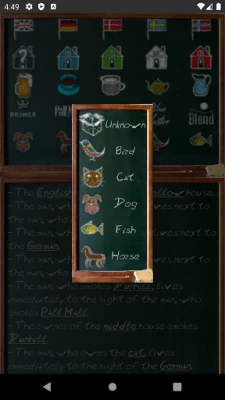 4:49
PRINCE
Pall M
Blue
Master
Blend
Unknown
Bird
Cat
Dog
Fish
Horse
- The English
yellow house.
- The man, wh
ves next to
the man, who
- The man, wh
ves next to
the German.
- The man, who smokes Dunhill, lives
immediately to the right of the man, who
smokes Pall Mall.
- The owner of the middle house smokes
Dunhill.
- The man, who owns the cat, lives
immediately to the right of the German.